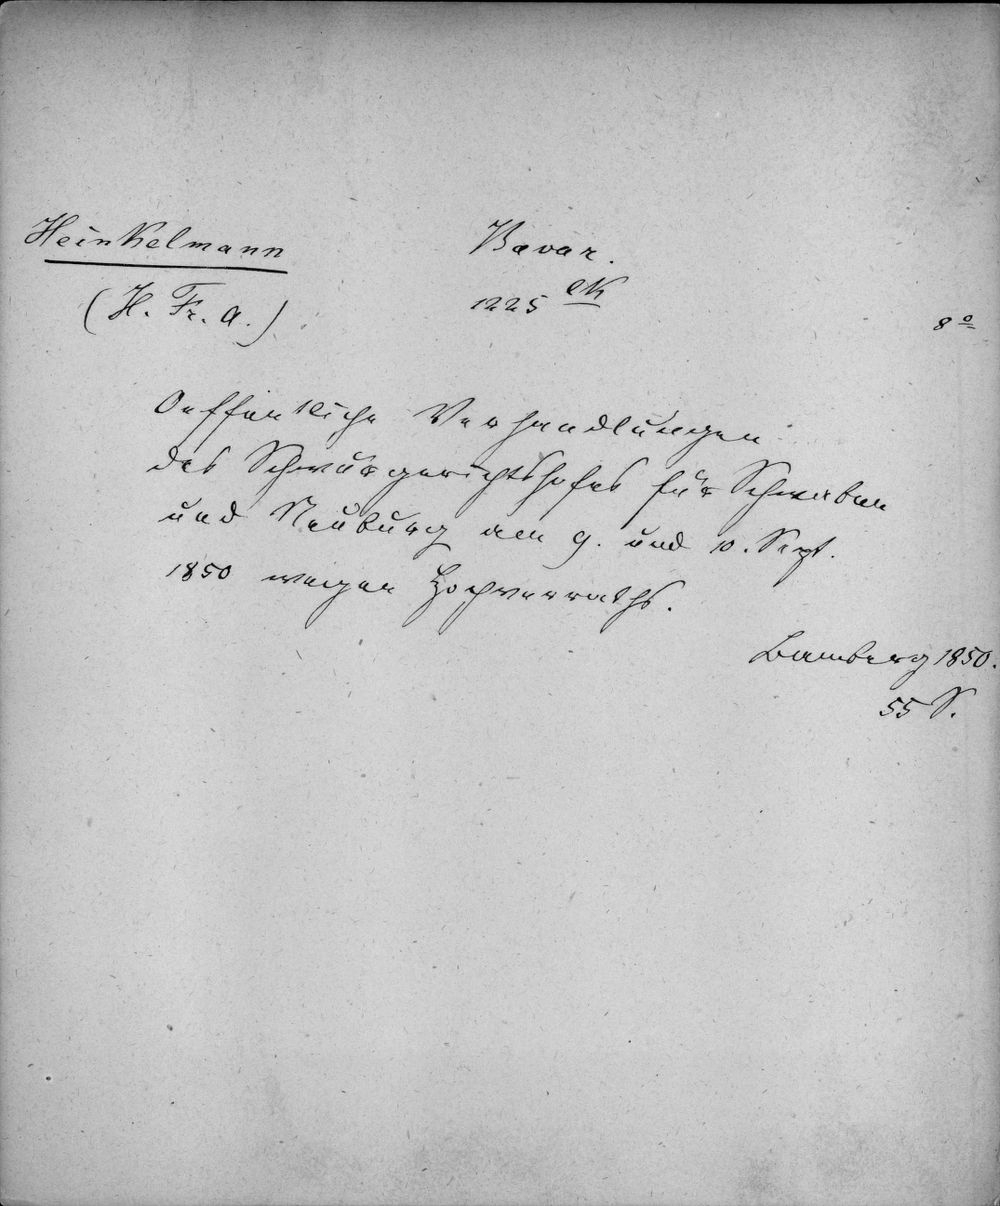 Heinkelmann
(H. Fr. A.)
Bavar.
1225 ek
8o
Oeffentliche Verhandlungen
des Schwurgerichtshofes für Schwaben
und Neuburg am 9. und 10. Sept.
1850 wegen Hochverraths.
Bamberg 1850.
55 S.